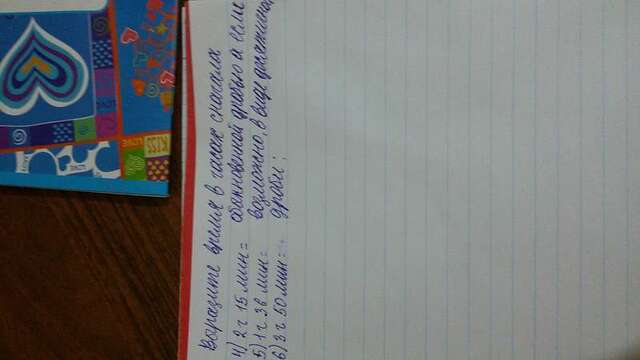 LOVE
KISS
LOVE
Выразите время в часах сначала
4) 2 ч 15 мин = обыкновенной дробью а если
5) 1 ч 36 мин = возможно, в виде десятичной
6) 3 ч 50 мин = дроби;